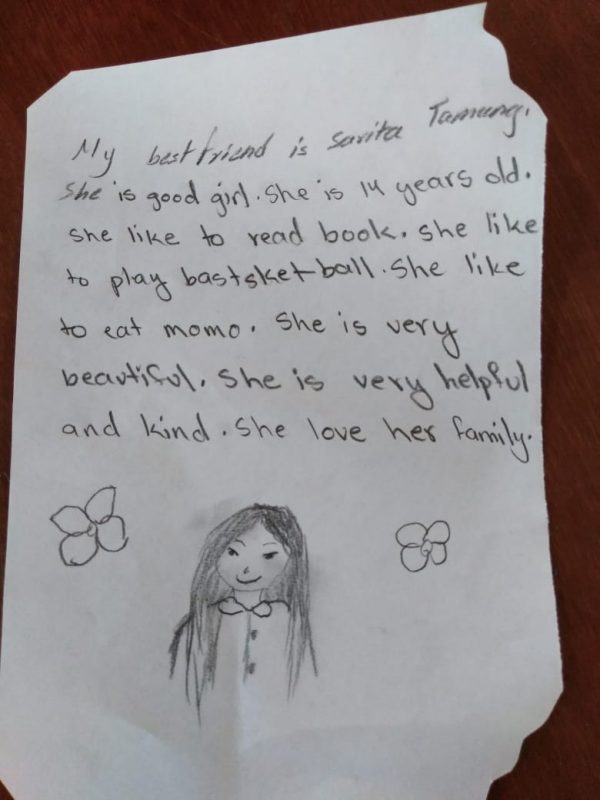 My best friend is Sarita Tamang.
She is good girl. She is 14 years old.
She like to read book. She like
to play bastsketball. She like
to eat momo. She is very
beautiful. She is very helpful
and kind. She love her family.